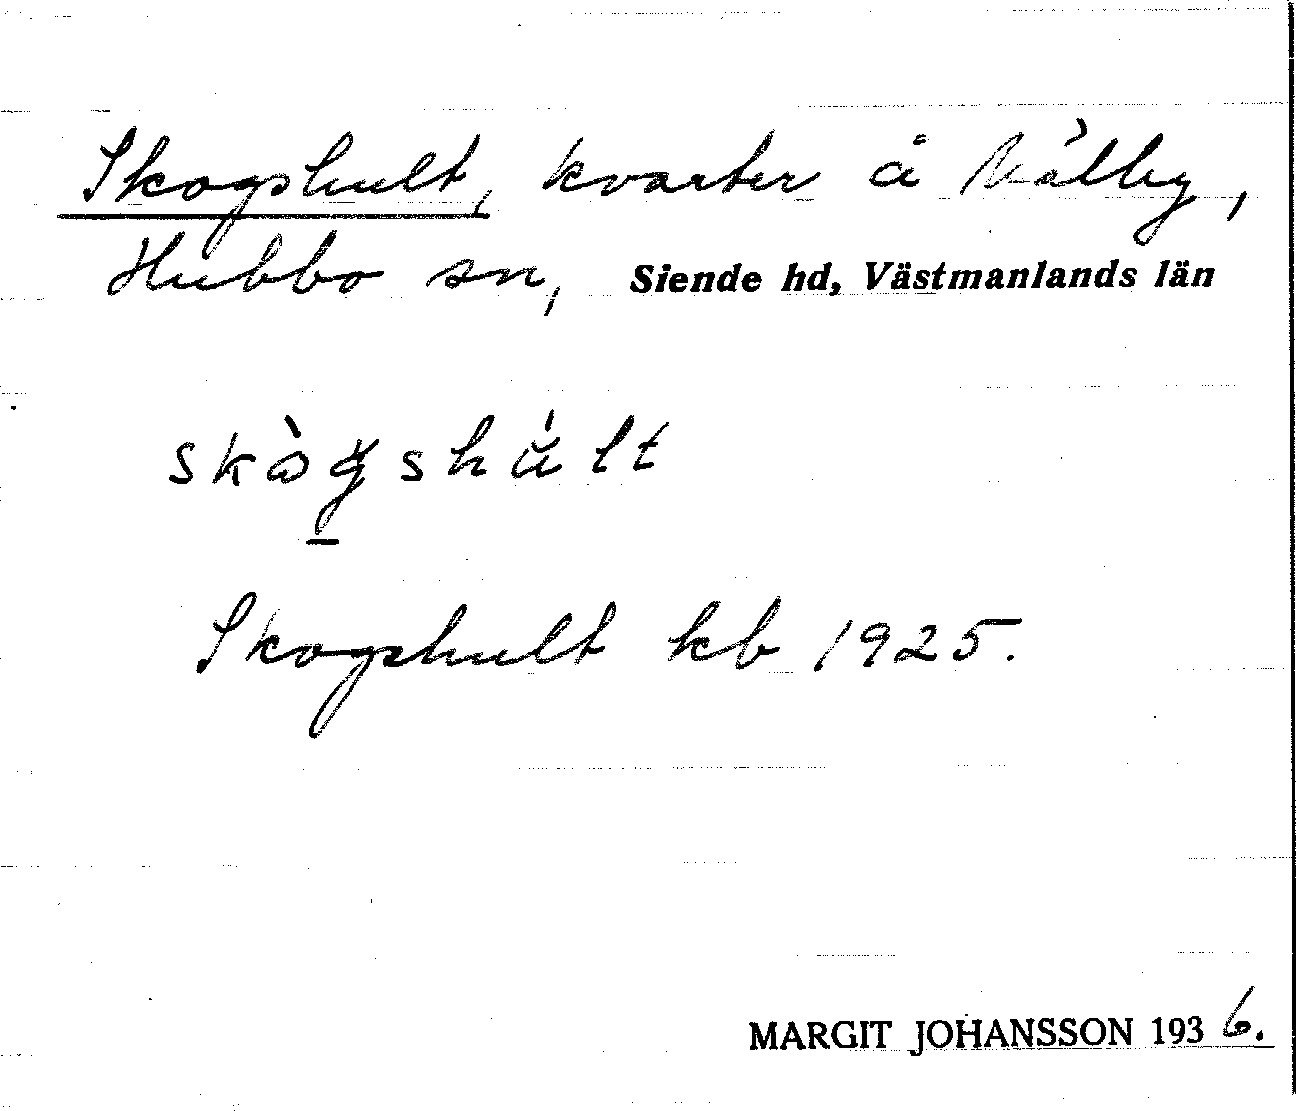 Skogshult, kvarter å Målby,
Hubbo sn, Siende hd, Västmanlands län
skògshúlt
Skogshult kb 1925.
MARGIT JOHANSSON 1936.